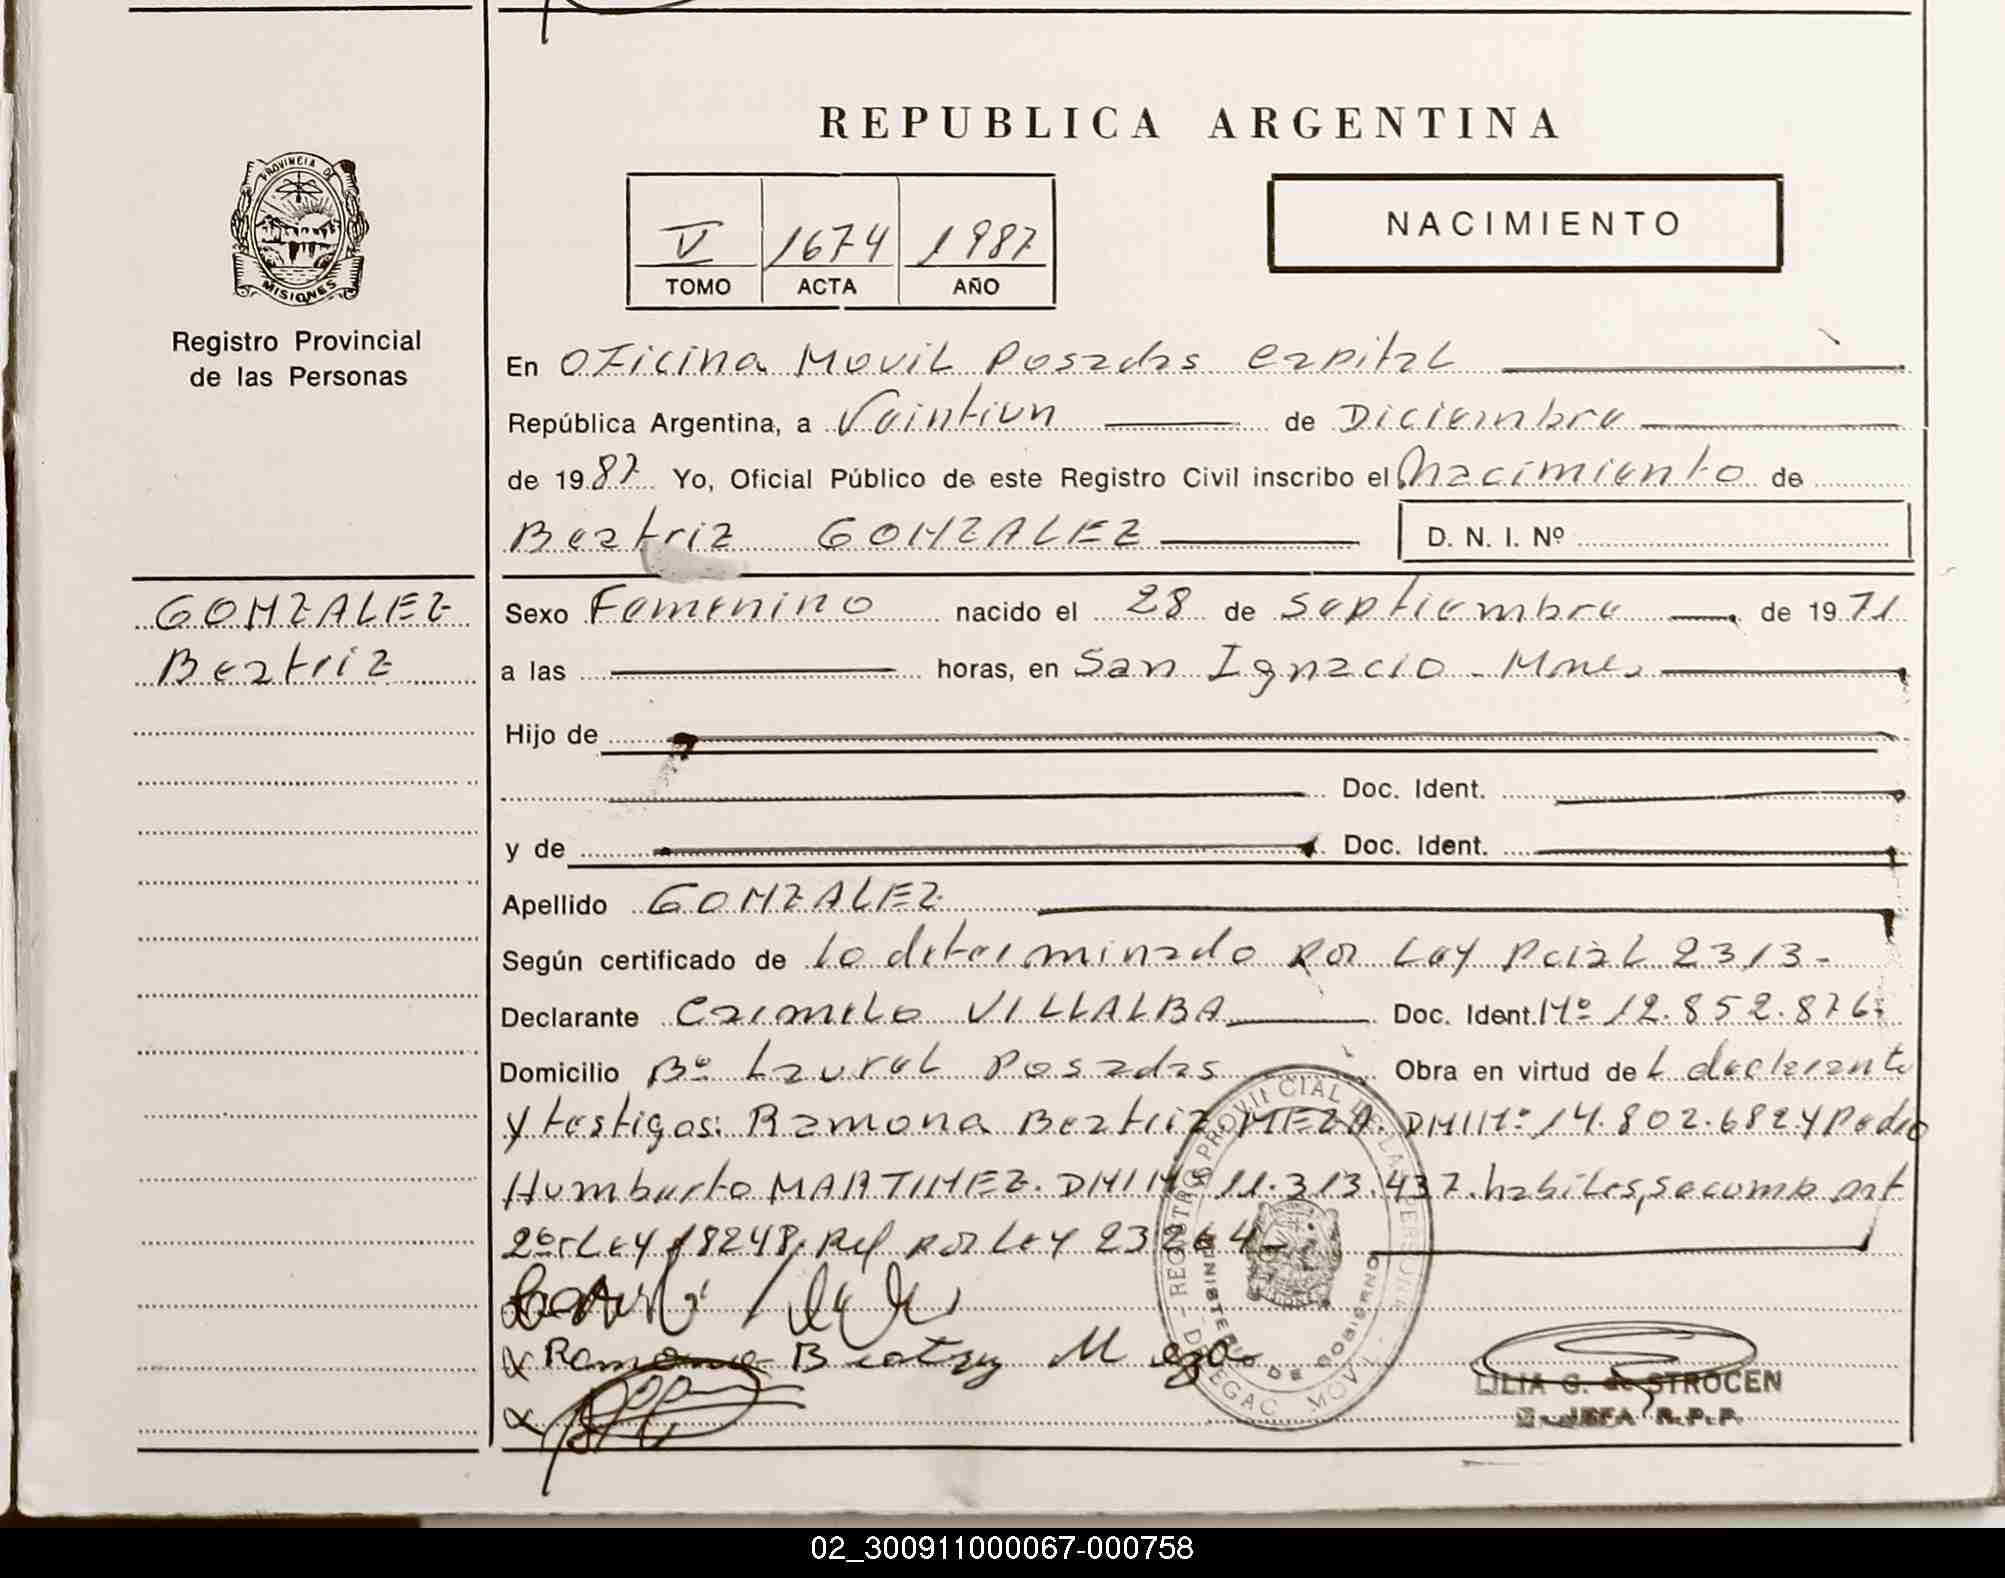 REPUBLICA ARGENTINA
PROVINCIA DE
MISIONES
Registro Provincial
de las Personas
V 1674 1987
TOMO ACTA AÑO
NACIMIENTO
En Oficina Movil Posadas Capital
República Argentina, a Veintiun de Diciembre
de 1987 Yo, Oficial Público de este Registro Civil inscribo el Nacimiento de
Beatriz GONZALEZ D. N. I. Nº
GONZALEZ
Beatriz
Sexo Femenino nacido el 28 de Septiembre de 1971
a las horas, en San Ignacio - Mnes
Hijo de
Doc. Ident.
y de Doc. Ident.
Apellido GONZALEZ
Según certificado de lo determinado por Ley Pcial 2313-
Declarante Carmelo VILLALBA Doc. Ident. Nº 12.852.876
Domicilio Bº Laurel Posadas Obra en virtud de L declarante
y testigos: Ramona Beatriz MEZA. DNI Nº 14.802.682 y Pedro
Humberto MARTINEZ. DNI Nº 11.313.437. habiles, se comp art
2º Ley 18248, Ref por Ley 23264-
Ramona Beatriz Meza
REGISTRO PROVINCIAL DE LAS PERSONAS
MINISTERIO DE GOBIERNO
DELEGAC. MOVIL
LILIA G. de STROCEN
JEFA R.P.P.
02_300911000067-000758